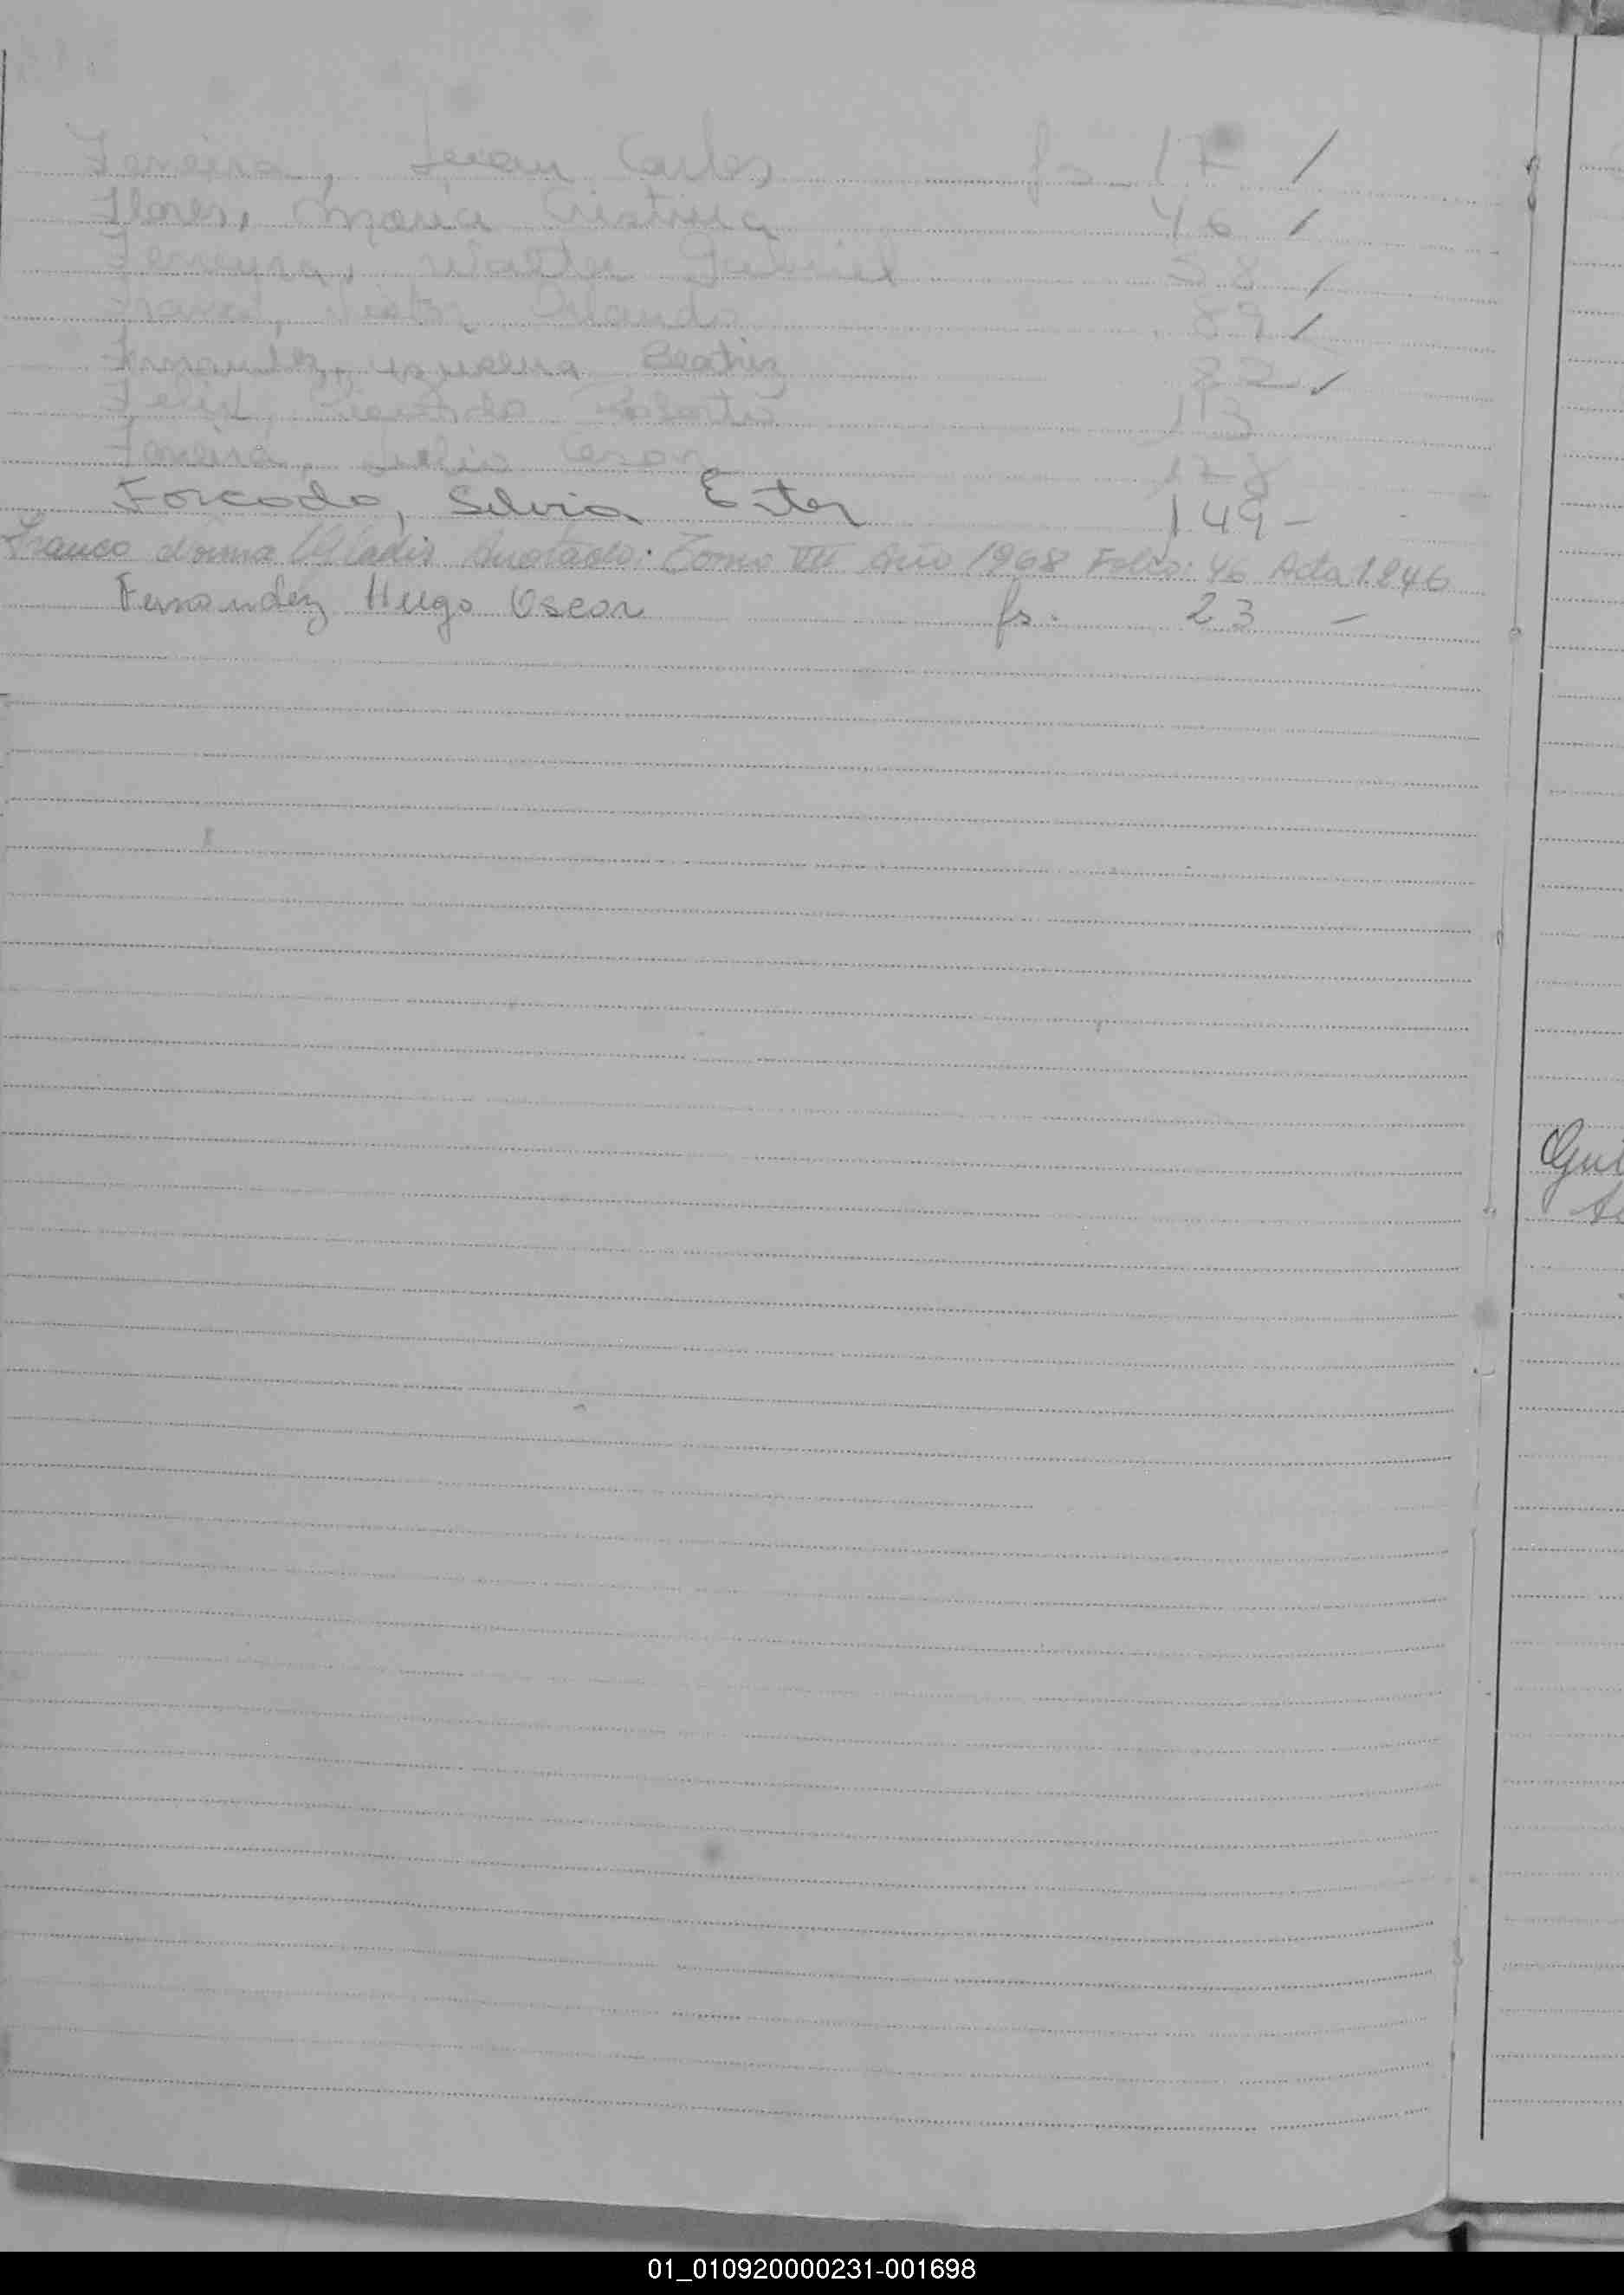 Ferreira, Juan Carlos fs. 17 /
Flores, Maria Cristina 46 /
Ferreyra, Walter Gabriel 58 /
Franco, Orlando 89 /
Fernandez, Beatriz 82 /
Felix Roberto 113
Ferreira, Julio Cesar 178
Forcado, Silvia Ester 149 -
Franco Norma Gladis Anotado: Tomo VII Año 1968 Folio: 46 Acta 1846
Fernandez Hugo Oscar fs. 23 -
Gut
01_010920000231-001698